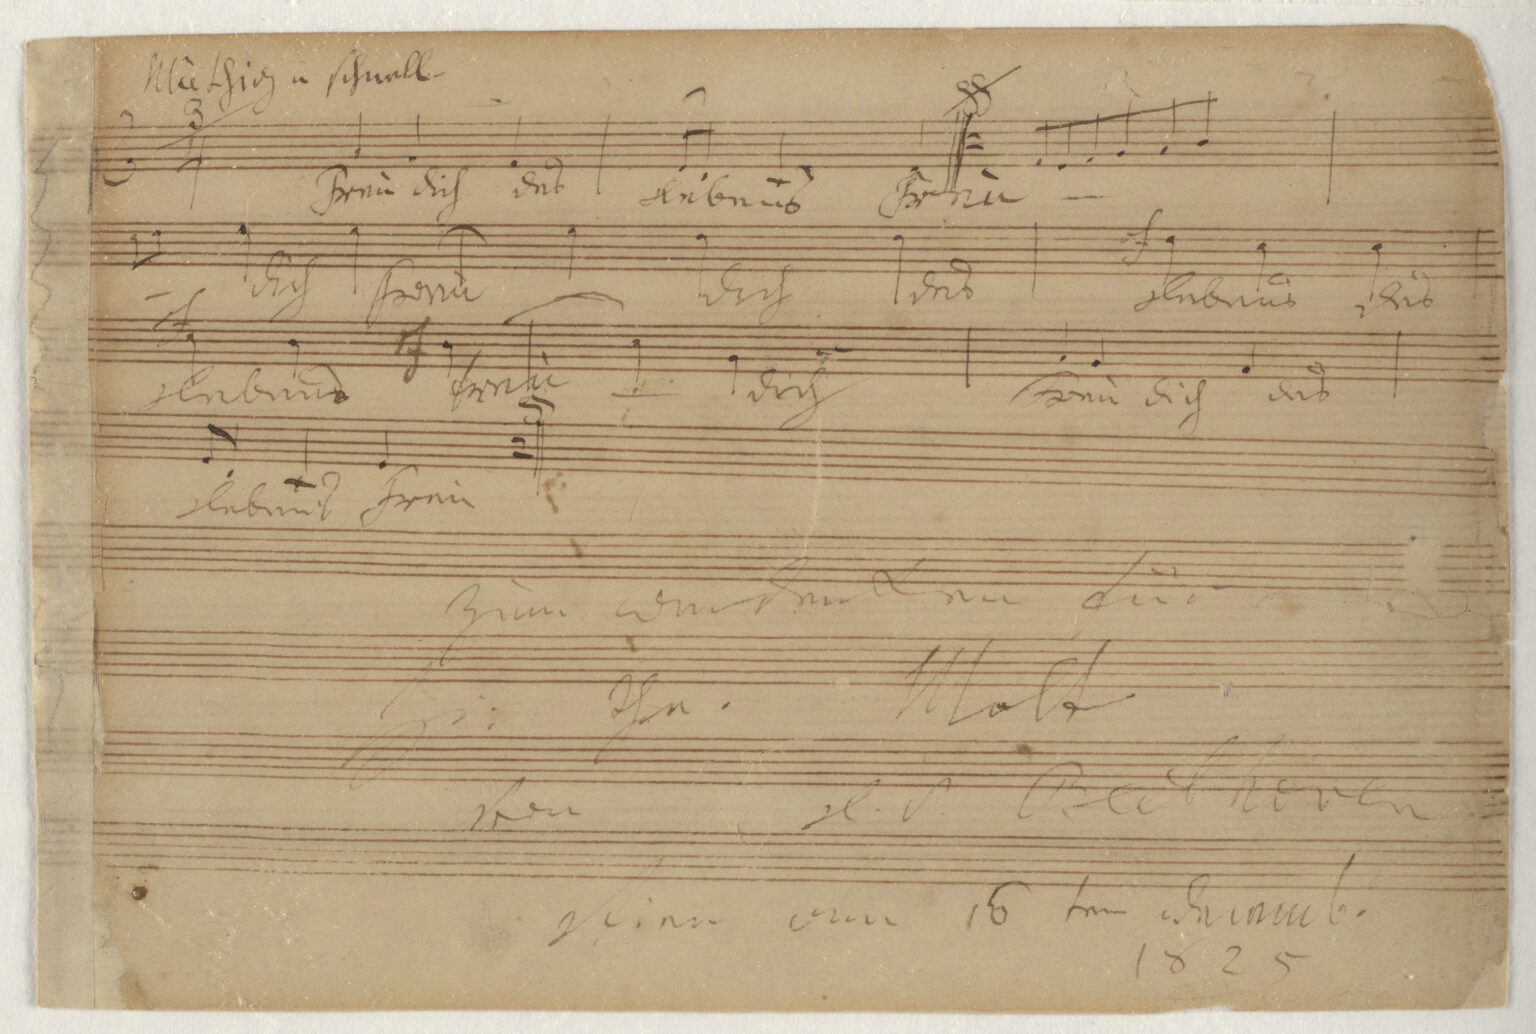 Muthig u schnell
3/4
Freu dich des Lebens Freu —
dich Freu dich des sf Lebens des
sf Lebens sf Freu — dich Freu dich des
Lebens Freu
zum Andenken für
Hr: Th. Molt
von L. v. Beethoven
Wien am 16ten Decemb.
1825